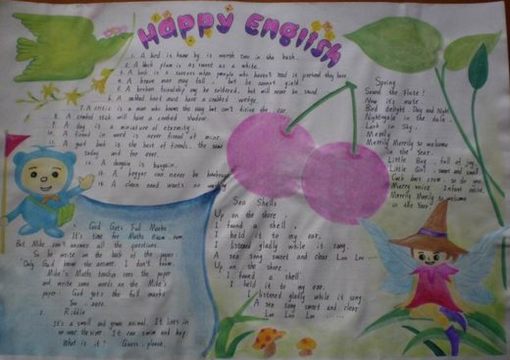 Happy English
1. A bird is know by is worth two in the bush.
2. A black plum is as sweet as a white.
3. A book is a success when people who haven't read it pretend they have.
4. A brave man may fall, but he cannot yield
5. A broken friendship may be soldered, but will never be sound
6. A cobbed head must have a cobbed wedge.
7. A critic is a man who knows the way but can't drive the car.
8. A crooked stick will have a crooked shadow.
9. A day is a miniature of eternity.
A friend in word is never friend of mine.
11. A good book is the best of friends, the same
today and for ever.
12. A bargain is bargain.
A beggar can never be bankrupt
A clean hand wants no washing
God Gets Full Marks
It's time for Maths Exam now
But Mike can't answer all the questions.
So he write on the back of the paper:
"Only God know the answer. I don't know."
Mike's Maths teacher sees the paper
and write some words on the Mike's
paper: God gets the full marks
You: zero.
Riddle
It's a small and green animal. It lives in
or near the river. It can swim and hop.
What is it? Guess, please.
Sea Shells
Up on the shore
I found a shell,
I held it to my ear.
I listened gladly while it sang,
A sea song sweet and clear
Up on the shore
I found a shell.
I held it to my ear.
I listened gladly while it sang
A sea song sweet and clear
Spring
Sound the flute!
Now it's mute
Bird delight Day and Night
Nightingale in the dale.
Lark in Sky.
Merrily
Merrily Merrily to welcome
in the Year.
Little Boy, full of joy.
Little Girl, sweet and small
Cock does crow, so do you
Merry voice Infant noise.
Merrily Merrily to welcome
in the Year!